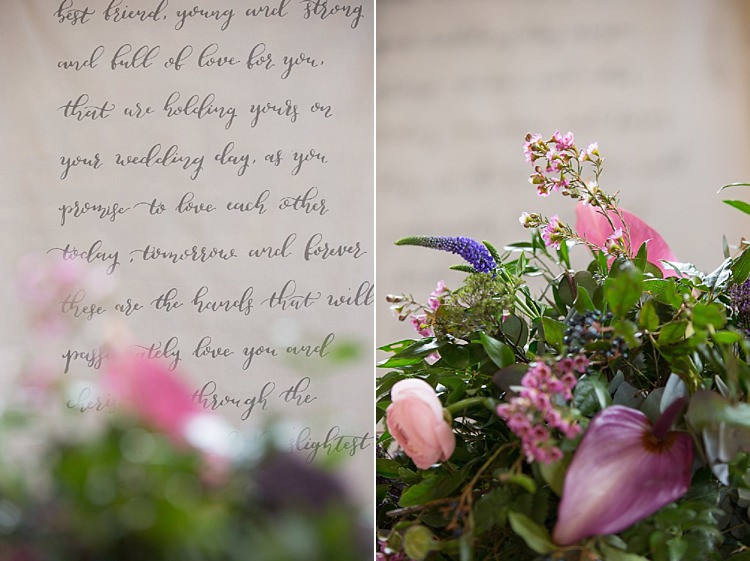 best friend, young and strong
and full of love for you,
that are holding yours on
your wedding day, as you
promise to love each other
today, tomorrow and forever
these are the hands that will
love you and
through the
slightest